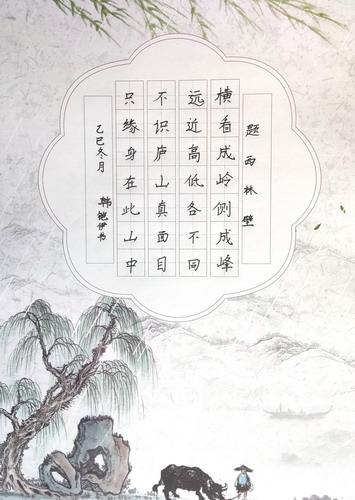 题西林壁
横看成岭侧成峰
远近高低各不同
不识庐山真面目
只缘身在此山中
乙巳冬月
韩铠伊书